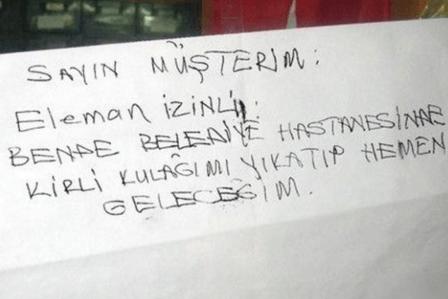 SAYIN MÜŞTERİM:
Eleman İZİNLİ.
BENDE BELEDİYE HASTANESİNDE
KİRLİ KULAĞIMI YIKATIP HEMEN
GELECEĞİM.